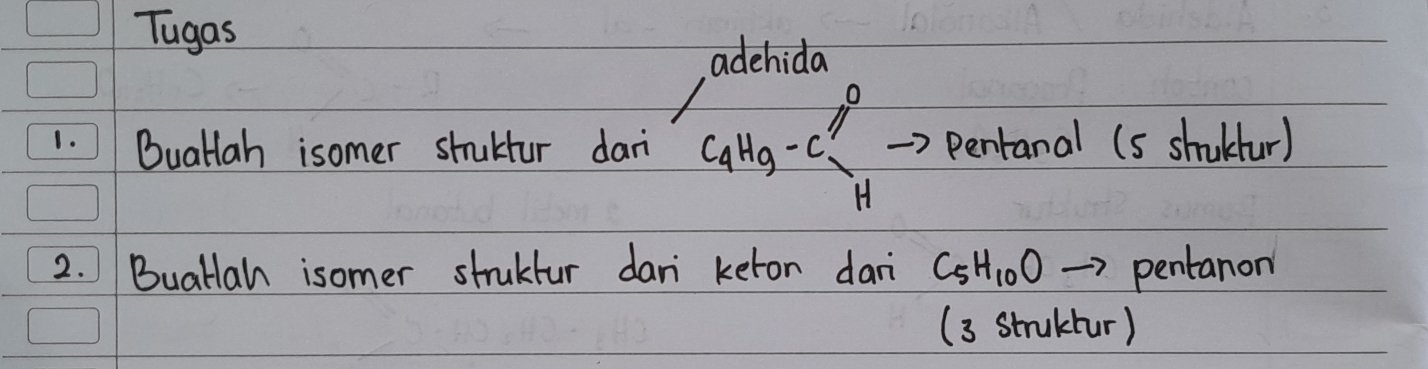 Tugas
adehida
O
1. Buatlah isomer struktur dari C4H9-C → pentanal (5 struktur)
H
2. Buatlah isomer struktur dari keton dari C5H10O → pentanon
(3 struktur)